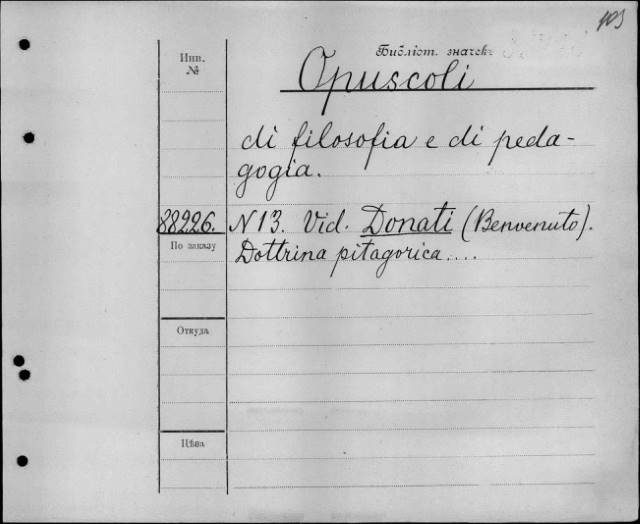 103
Библіот. значек.
Инв.
№
Opuscoli
di filosofia e di peda-
gogia.
88226. N 13. Vid. Donati (Benvenuto).
По заказу
Dottrina pitagorica....
Откуда
Цѣна